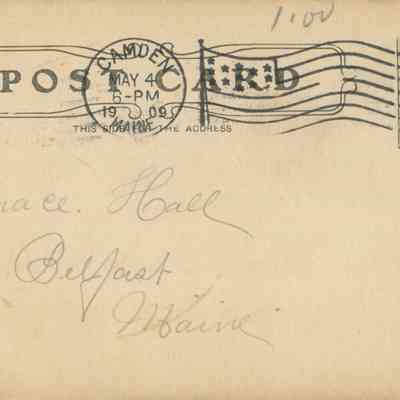 1.00
POST CARD
CAMDEN
MAY 4
6-PM
19 09
MAINE
THIS SIDE THE ADDRESS
Hall
Belfast
Maine